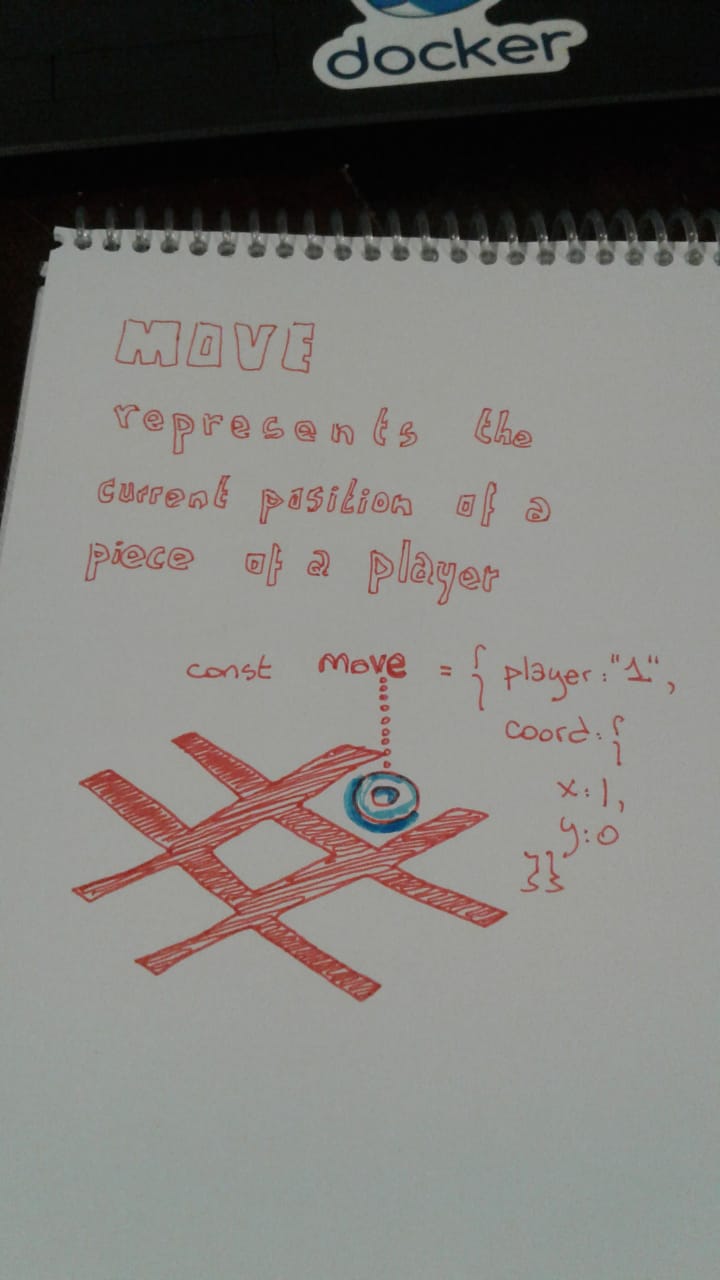 docker
MOVE
represents the
current position of a
piece of a player
const move = { player: "1",
coord: {
x: 1,
y: 0
}}